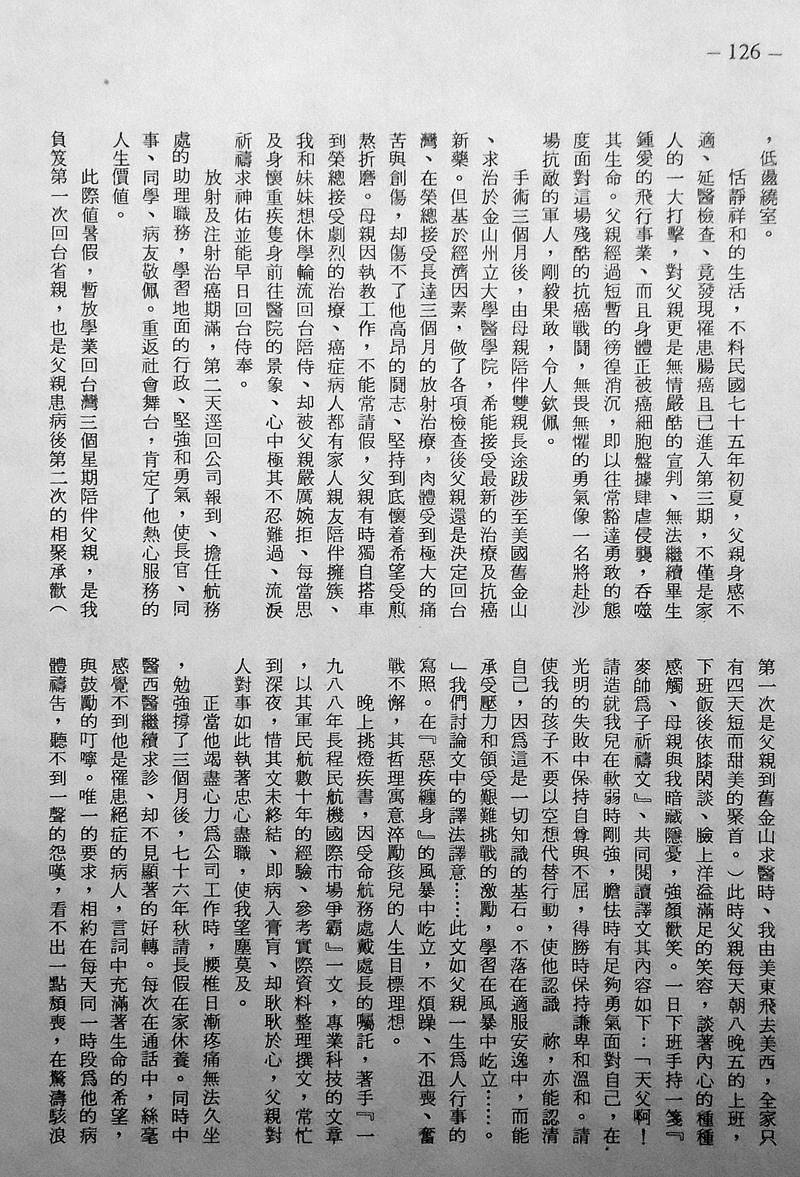 — 126 —
，低盪繞室。
恬靜祥和的生活，不料民國七十五年初夏，父親身感不
適、延醫檢查、竟發現罹患腸癌且已進入第三期，不僅是家
人的一大打擊，對父親更是無情嚴酷的宣判、無法繼續畢生
鍾愛的飛行事業、而且身體正被癌細胞盤據肆虐侵襲，吞噬
其生命。父親經過短暫的徬徨消沉，即以往常豁達勇敢的態
度面對這場殘酷的抗癌戰鬪，無畏無懼的勇氣像一名將赴沙
場抗敵的軍人，剛毅果敢，令人欽佩。
手術三個月後，由母親陪伴雙親長途跋涉至美國舊金山
、求治於金山州立大學醫學院，希能接受最新的治療及抗癌
新藥。但基於經濟因素，做了各項檢查後父親還是決定回台
灣、在榮總接受長達三個月的放射治療，肉體受到極大的痛
苦與創傷，却傷不了他高昂的鬪志、堅持到底懷着希望受煎
熬折磨。母親因執教工作，不能常請假，父親有時獨自搭車
到榮總接受劇烈的治療、癌症病人都有家人親友陪伴擁簇、
我和妹妹想休學輪流回台陪侍、却被父親嚴厲婉拒、每當思
及身懷重疾隻身前往醫院的景象、心中極其不忍難過、流淚
祈禱求神佑並能早日回台侍奉。
放射及注射治癌期滿，第二天逕回公司報到、擔任航務
處的助理職務，學習地面的行政、堅強和勇氣，使長官、同
事、同學、病友敬佩。重返社會舞台，肯定了他熱心服務的
人生價值。
此際值暑假，暫放學業回台灣三個星期陪伴父親，是我
負笈第一次回台省親，也是父親患病後第二次的相聚承歡（
第一次是父親到舊金山求醫時、我由美東飛去美西，全家只
有四天短而甜美的聚首。）此時父親每天朝八晚五的上班，
下班飯後依膝閑談、臉上洋溢滿足的笑容，談著內心的種種
感觸、母親與我暗藏隱憂，強顏歡笑。一日下班手持一箋『
麥帥爲子祈禱文』、共同閱讀譯文其內容如下：「天父啊！
請造就我兒在軟弱時剛強，膽怯時有足夠勇氣面對自己，在
光明的失敗中保持自尊與不屈，得勝時保持謙卑和溫和。請
使我的孩子不要以空想代替行動，使他認識　祢，亦能認清
自己，因爲這是一切知識的基石。不落在適服安逸中，而能
承受壓力和領受艱難挑戰的激勵，學習在風暴中屹立……。
」我們討論文中的譯法譯意……此文如父親一生爲人行事的
寫照。在『惡疾纏身』的風暴中屹立，不煩躁、不沮喪、奮
戰不懈，其哲理寓意淬勵孩兒的人生目標理想。
晚上挑燈疾書，因受命航務處戴處長的囑託，著手『一
九八八年長程民航機國際市場爭霸』一文，專業科技的文章
，以其軍民航數十年的經驗、參考實際資料整理撰文，常忙
到深夜，惜其文未終結、即病入膏肓、却耿耿於心，父親對
人對事如此執著忠心盡職，使我望塵莫及。
正當他竭盡心力爲公司工作時，腰椎日漸疼痛無法久坐
，勉強撐了三個月後，七十六年秋請長假在家休養。同時中
醫西醫繼續求診、却不見顯著的好轉。每次在通話中，絲毫
感覺不到他是罹患絕症的病人，言詞中充滿著生命的希望，
與鼓勵的叮嚀。唯一的要求，相約在每天同一時段爲他的病
體禱告，聽不到一聲的怨嘆，看不出一點頹喪，在驚濤駭浪